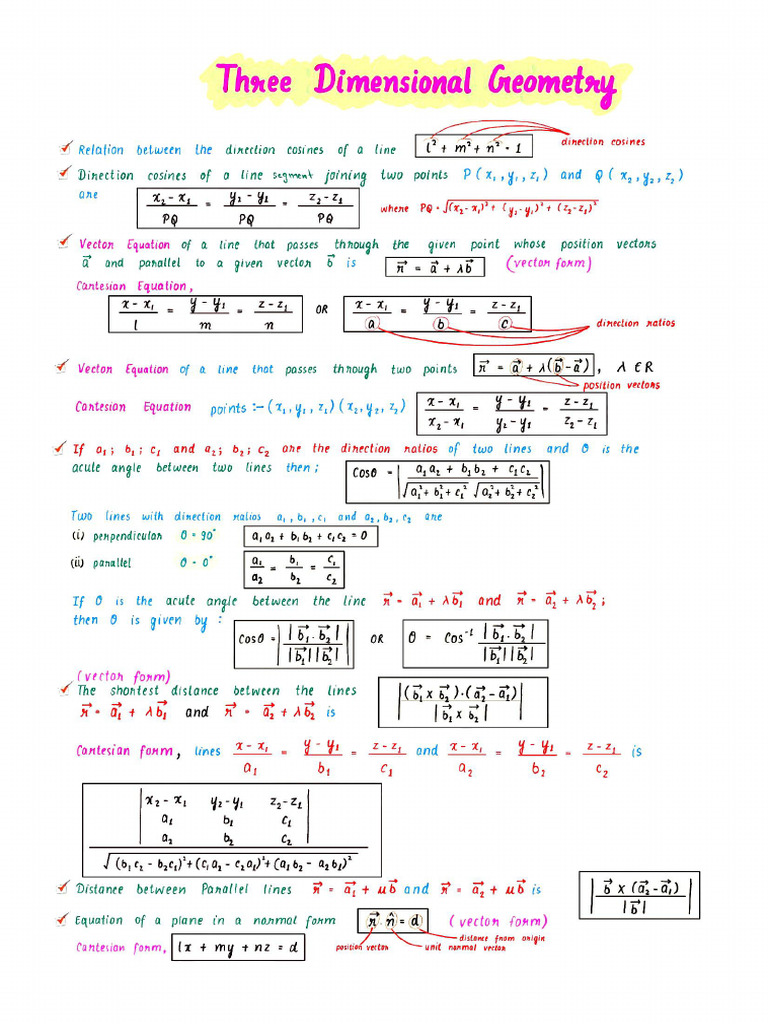 Three Dimensional Geometry
Relation between the direction cosines of a line l² + m² + n² = 1 direction cosines
Direction cosines of a line segment joining two points P(x₁, y₁, z₁) and Q(x₂, y₂, z₂)
are (x₂ - x₁)/PQ = (y₂ - y₁)/PQ = (z₂ - z₁)/PQ where PQ = √((x₂-x₁)² + (y₂-y₁)² + (z₂-z₁)²)
Vector Equation of a line that passes through the given point whose position vectors
a⃗ and parallel to a given vector b⃗ is r⃗ = a⃗ + λb⃗ (vector form)
Cartesian Equation,
(x - x₁)/l = (y - y₁)/m = (z - z₁)/n OR (x - x₁)/a = (y - y₁)/b = (z - z₁)/c direction ratios
Vector Equation of a line that passes through two points r⃗ = a⃗ + λ(b⃗ - a⃗), λ ∈ R
position vectors
Cartesian Equation points :- (x₁, y₁, z₁) (x₂, y₂, z₂) (x - x₁)/(x₂ - x₁) = (y - y₁)/(y₂ - y₁) = (z - z₁)/(z₂ - z₁)
If a₁; b₁; c₁ and a₂; b₂; c₂ are the direction ratios of two lines and θ is the
acute angle between two lines then; Cosθ = |(a₁a₂ + b₁b₂ + c₁c₂)/(√(a₁²+b₁²+c₁²) √(a₂²+b₂²+c₂²))|
Two lines with direction ratios a₁, b₁, c₁ and a₂, b₂, c₂ are
(i) perpendicular θ = 90° a₁a₂ + b₁b₂ + c₁c₂ = 0
(ii) parallel θ = 0° a₁/a₂ = b₁/b₂ = c₁/c₂
If θ is the acute angle between the line r⃗ = a₁⃗ + λb₁⃗ and r⃗ = a₂⃗ + λb₂⃗;
then θ is given by : Cosθ = ||b₁⃗ · b₂⃗|/(|b₁⃗||b₂⃗|)| OR θ = Cos⁻¹ |b₁⃗ · b₂⃗|/(|b₁⃗||b₂⃗|)
(vector form)
The shortest distance between the lines |((b₁⃗ x b₂⃗)·(a₂⃗ - a₁⃗))/|b₁⃗ x b₂⃗||
r⃗ = a₁⃗ + λb₁⃗ and r⃗ = a₂⃗ + λb₂⃗ is
Cartesian form, lines (x - x₁)/a₁ = (y - y₁)/b₁ = (z - z₁)/c₁ and (x - x₁)/a₂ = (y - y₁)/b₂ = (z - z₁)/c₂ is
| x₂ - x₁ y₂ - y₁ z₂ - z₁ |
| a₁ b₁ c₁ |
| a₂ b₂ c₂ |
√((b₁c₂ - b₂c₁)² + (c₁a₂ - c₂a₁)² + (a₁b₂ - a₂b₁)²)
Distance between Parallel lines r⃗ = a₁⃗ + μb⃗ and r⃗ = a₂⃗ + μb⃗ is |(b⃗ x (a₂⃗ - a₁⃗))/|b⃗||
Equation of a plane in a normal form r⃗ · n̂ = d (vector form)
distance from origin
Cartesian form, lx + my + nz = d position vector unit normal vector